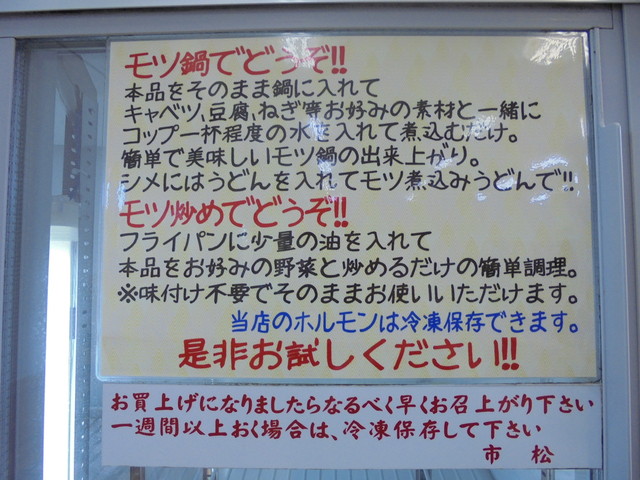 モツ鍋でどうぞ!!
本品をそのまま鍋に入れて
キャベツ、豆腐、ねぎ等お好みの素材と一緒に
コップ一杯程度の水を入れて煮込むだけ。
簡単で美味しいモツ鍋の出来上がり。
シメにはうどんを入れてモツ煮込みうどんで!!
モツ炒めでどうぞ!!
フライパンに少量の油を入れて
本品をお好みの野菜と炒めるだけの簡単調理。
※味付け不要でそのままお使いいただけます。
当店のホルモンは冷凍保存できます。
是非お試しください!!
お買上げになりましたらなるべく早くお召上がり下さい
一週間以上おく場合は、冷凍保存して下さい
市松